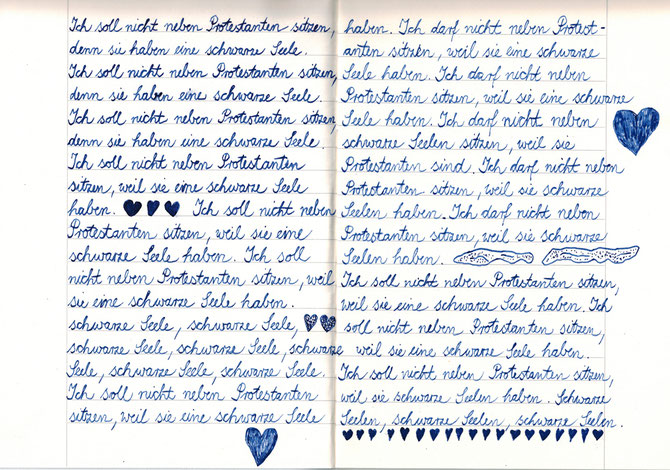 Ich soll nicht neben Protestanten sitzen,
denn sie haben eine schwarze Seele.
Ich soll nicht neben Protestanten sitzen,
denn sie haben eine schwarze Seele.
Ich soll nicht neben Protestanten sitzen,
denn sie haben eine schwarze Seele.
Ich soll nicht neben Protestanten
sitzen, weil sie eine schwarze Seele
haben. Ich soll nicht neben
Protestanten sitzen, weil sie eine
schwarze Seele haben. Ich soll
nicht neben Protestanten sitzen, weil
sie eine schwarze Seele haben.
schwarze Seele, schwarze Seele,
schwarze Seele, schwarze Seele, schwarze
Seele, schwarze Seele, schwarze Seele.
Ich soll nicht neben Protestanten
sitzen, weil sie eine schwarze Seele
haben. Ich darf nicht neben Protest-
anten sitzen, weil sie eine schwarze
Seele haben. Ich darf nicht neben
Protestanten sitzen, weil sie eine schwarze
Seele haben. Ich darf nicht neben
schwarze Seelen sitzen, weil sie
Protestanten sind. Ich darf nicht neben
Protestanten sitzen, weil sie schwarze
Seelen haben. Ich darf nicht neben
Protestanten sitzen, weil sie schwarze
Seelen haben.
Ich soll nicht neben Protestanten sitzen,
weil sie eine schwarze Seele haben. Ich
soll nicht neben Protestanten sitzen,
weil sie eine schwarze Seele haben.
Ich soll nicht neben Protestanten sitzen,
weil sie schwarze Seelen haben. Schwarze
Seelen, schwarze Seelen, schwarze Seelen.